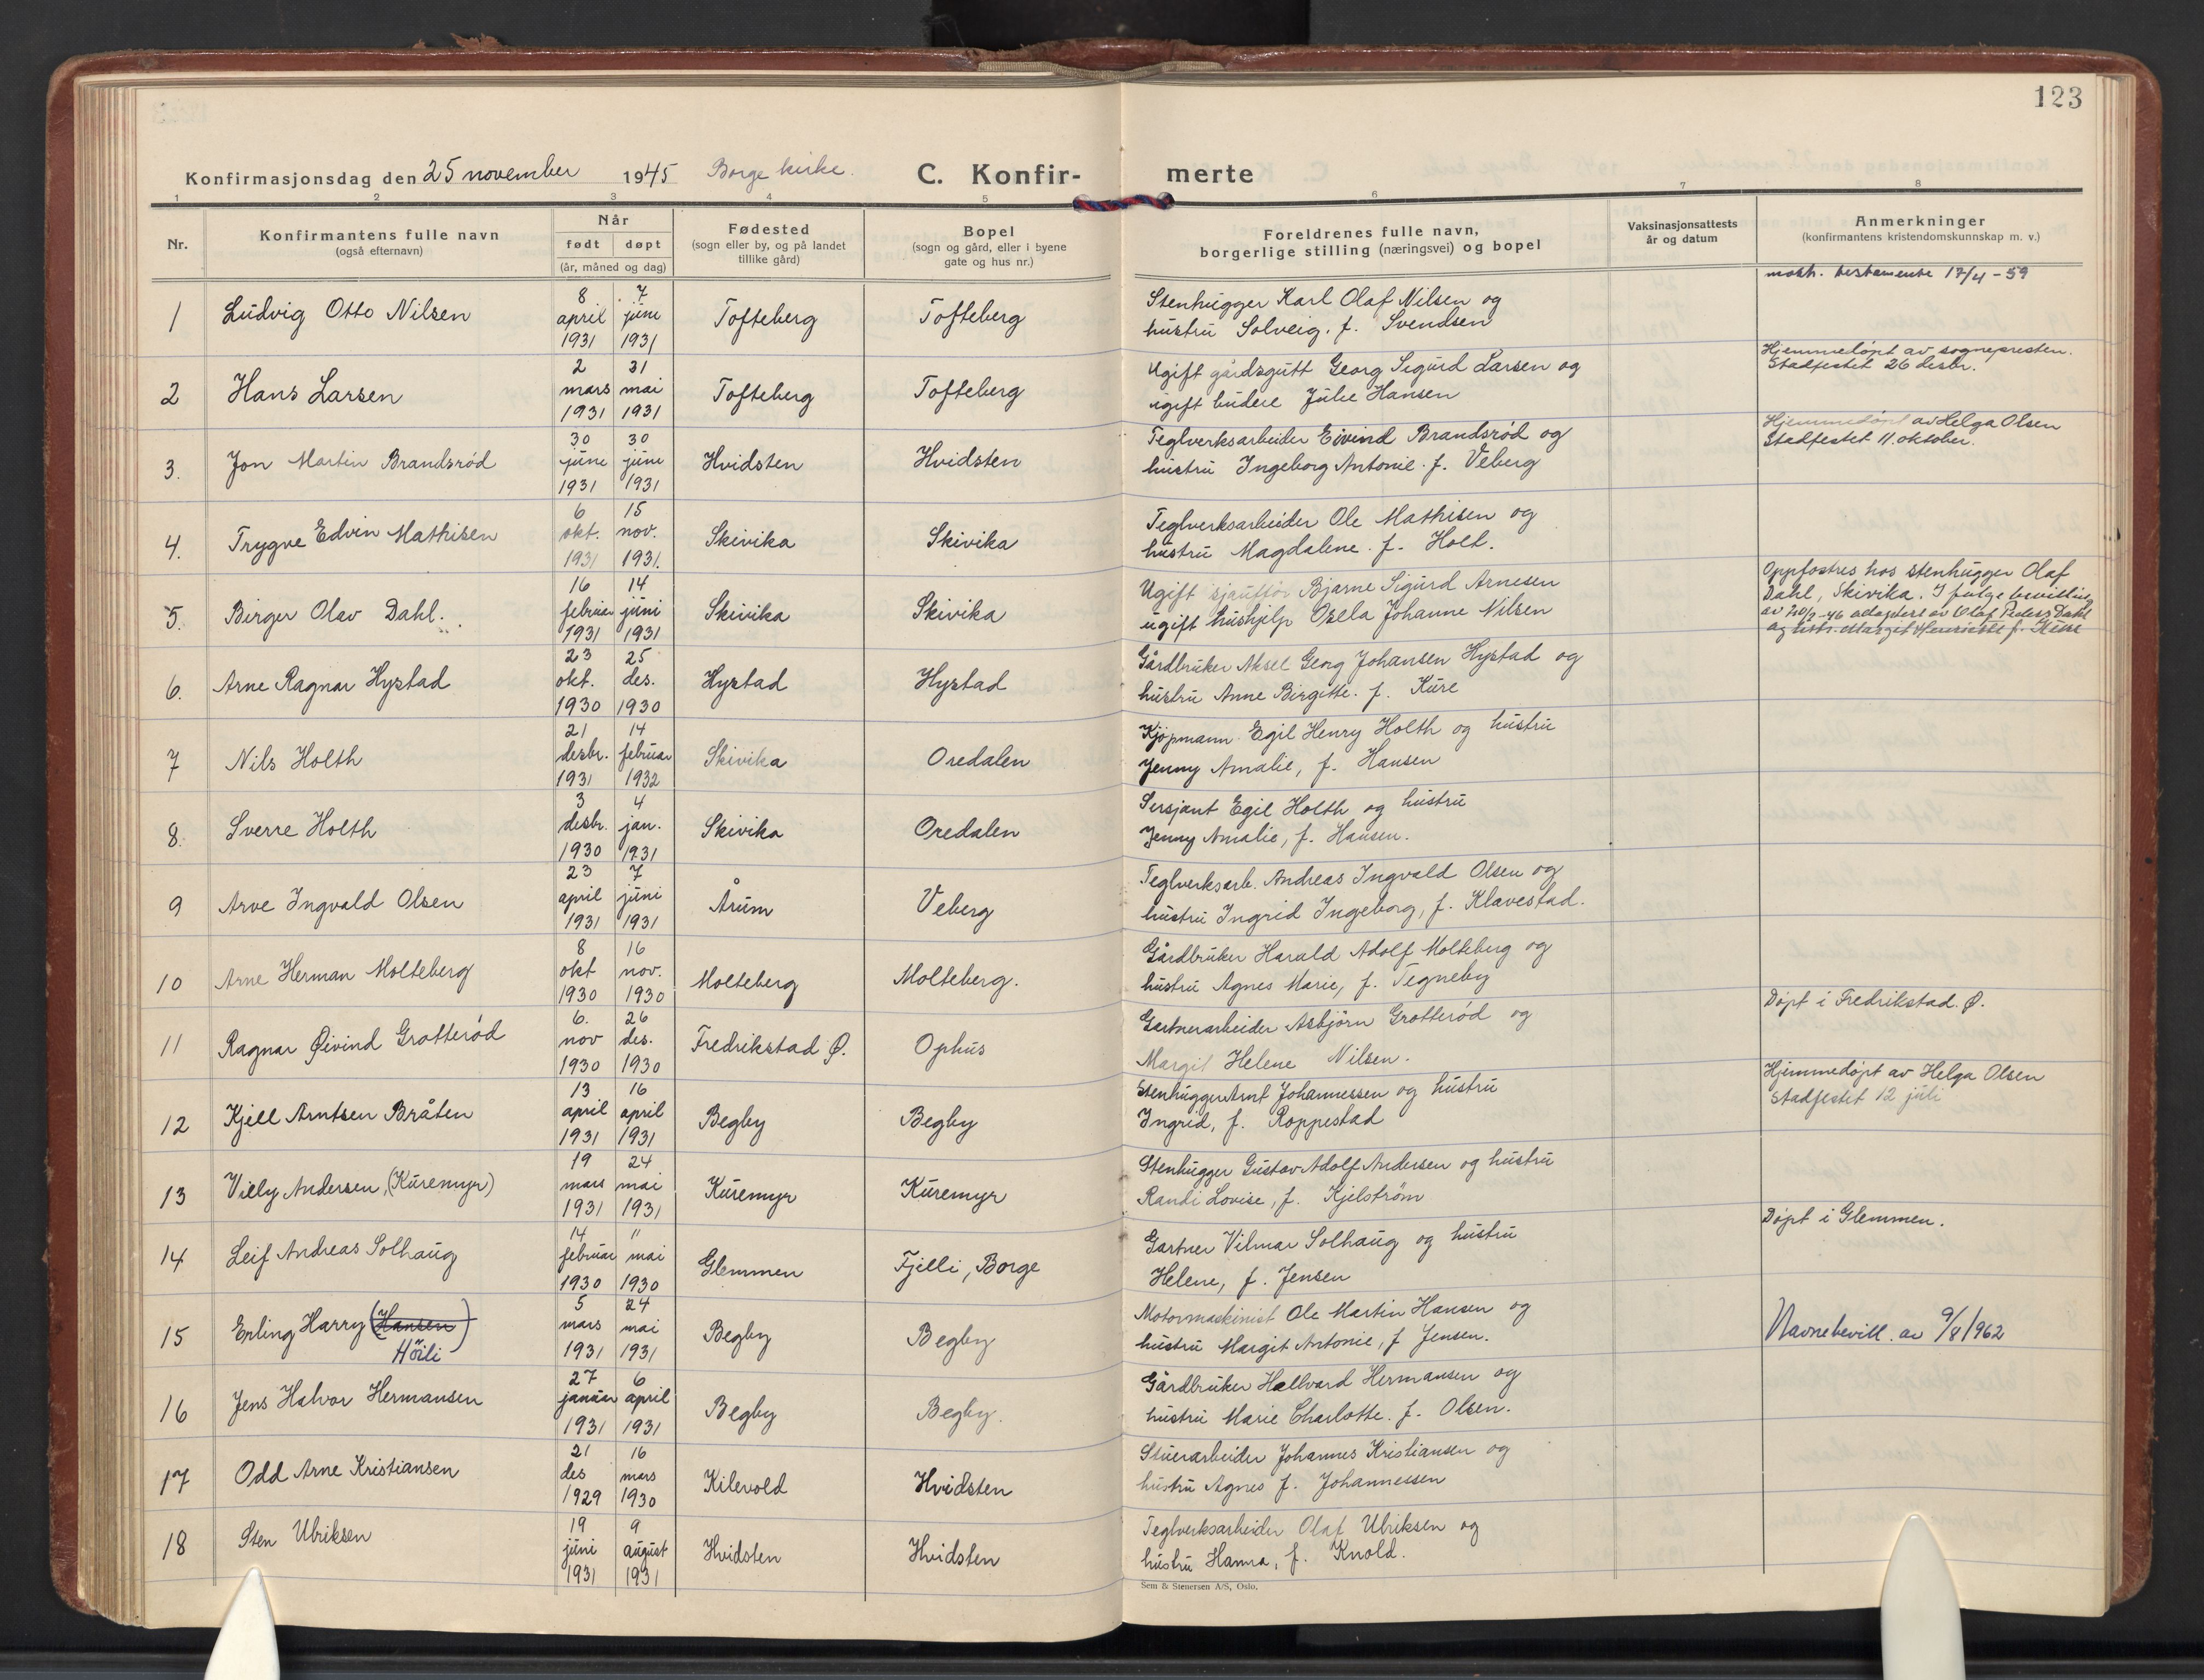 123
Konfirmasjonsdag den 25 november 1945 Borge kirke. C. Konfir- merte
1 2 3 4 5 6 7 8
Nr.
Konfirmantens fulle navn
(også efternavn)
Når
født døpt
(år, måned og dag)
Fødested
(sogn eller by, og på landet
tillike gård)
Bopel
(sogn og gård, eller i byene
gate og hus nr.)
Foreldrenes fulle navn,
borgerlige stilling (næringsvei) og bopel
Vaksinasjonsattests
år og datum
Anmerkninger
(konfirmantens kristendomskunnskap m. v.)
1 Ludvig Otto Nilsen
8 april 1931
7 juni 1931
Tofteberg
Tofteberg
Stenhugger Karl Olaf Nilsen og
hustru Solveig. f. Svendsen
testamente 17/4-59
2 Hans Larsen
2 mars 1931
31 mai 1931
Tofteberg
Tofteberg
Ugift gårdsgutt Georg Sigurd Larsen og
ugift budeie Julie Hansen
Hjemmedøpt av sognepresten.
Stadfestet 26 desbr.
3. Jon Martin Brandsrød
30 juni 1931
30 juni 1931
Hvidsten
Hvidsten
Teglverksarbeider Eivind Brandsrød og
hustru Ingeborg Antonie. f. Veberg
Hjemmedøpt av Helga Olsen
Stadfestet 11. oktober.
4. Trygve Edvin Mathisen
6 okt. 1931
15 nov. 1931.
Skivika
Skivika
Teglverksarbeider Ole Mathisen og
hustru Magdalene. f. Holt.
5. Birger Olav Dahl.
16 februar 1931
14 juni 1931
Skivika
Skivika
Ugift sjauffør Bjarne Sigurd Arnesen
ugift hushjelp Osela Johanne Nilsen
Oppfostres hos stenhugger Olaf
Dahl, Skivika. I følge bevilling
av -46 adoptert av Olaf Peders. Dahl
og hstr. Marget Henriette f. Kure
6. Arne Ragnar Hystad
23 okt. 1930
25 des. 1930
Hystad
Hystad
Gårdbruker Aksel Georg Johansen Hystad og
hustru Anne Birgitte. f. Kure
7 Nils Holth
21 desbr. 1931
14 februar 1932
Skivika
Oredalen
Kjøpmann Egil Henry Holth og hustru
Jenny Amalie, f. Hansen
8. Sverre Holth
3 desbr. 1930
4 jan. 1931
Skivika
Oredalen
Sersjant Egil Holth og hustru
Jenny Amalie, f. Hansen.
9 Arve Ingvald Olsen
23 april 1931
7 juni 1931
Årum
Veberg
Teglverksarb. Andreas Ingvald Olsen og
hustru Ingrid Ingeborg, f. Klavestad.
10 Arne Herman Molteberg
8 okt 1930
16 nov. 1930
Molteberg
Molteberg.
Gårdbruker Harald Adolf Molteberg og
hustru Agnes Marie, f. Tegneby
11 Ragnar Øivind Grotterød
6. nov 1930
26 des. 1930
Fredrikstad Ø.
Ophus
Gartnerarbeider Asbjørn Grotterød og
Margit Helene Nilsen.
Døpt i Fredrikstad. Ø.
12 Kjell Arntsen Bråten
13 april 1931
16 april 1931
Begby
Begby
Stenhugger Arnt Johannessen og hustru
Ingrid, f. Roppestad
Hjemmedøpt av Helga Olsen
Stadfestet 12 juli
13 Villy Andersen, (Kuremyr)
19 mars 1931
24 mai 1931
Kuremyr
Kuremyr
Stenhugger Gustav Adolf Andersen og hustru
Randi Lovise, f. Kjelstrøm
14 Leif Andreas Solhaug
14 februar 1930
11 mai 1930
Glemmen
Fjelli, Borge
Gartner Vilmar Solhaug og hustru
Helene, f. Jensen
Døpt i Glemmen.
15 Erling Harry (Hansen)
Höili
5 mars 1931
24 mai 1931
Begby
Begby
Motormaskinist Ole Martin Hansen og
hustru Margit Antonie, f Jensen.
Navnebevill. av 9/8 1962
16 Jens Halvor Hermansen
27 januar 1931
6 april 1931
Begby
Begby.
Gårdbruker Hallvard Hermansen og
hustru Marie Charlotte. f. Olsen.
17 Odd Arne Kristiansen
21 des 1929
16 mars 1930
Kilevold
Hvidsten
Stuerarbeider Johannes Kristiansen og
hustru Agnes f. Johannessen
18 Sten Ulriksen
19 juni 1931
9 august 1931
Hvidsten
Hvidsten
Teglverksarbeider Olaf Ulriksen og
hustru Hanna, f. Knold.
Sem & Stenersen A/S, Oslo.